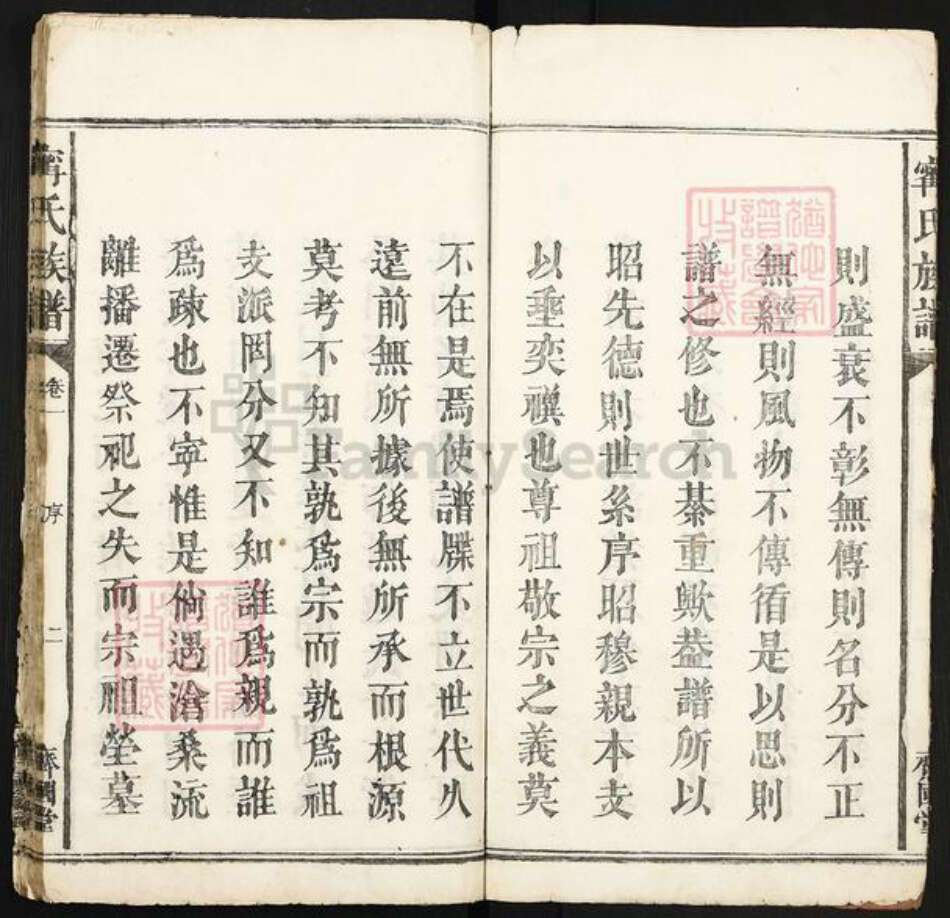 甯氏族譜
則盛衰不彰無傳則名分不正
無經則風物不傳循是以思則
譜之修也不綦重歟葢譜所以
昭先德則世系序昭穆親本支
以垂奕禩也尊祖敬宗之義莫
不在是焉使譜牒不立世代久
遠前無所據後無所承而根源
莫考不知其孰爲宗而孰爲祖
支派罔分又不知誰爲親而誰
爲疎也不寜惟是倘遇滄桑流
離播遷祭祀之失而宗祖塋墓
甯氏族譜 卷一 序 二 齊國堂
FamilySearch